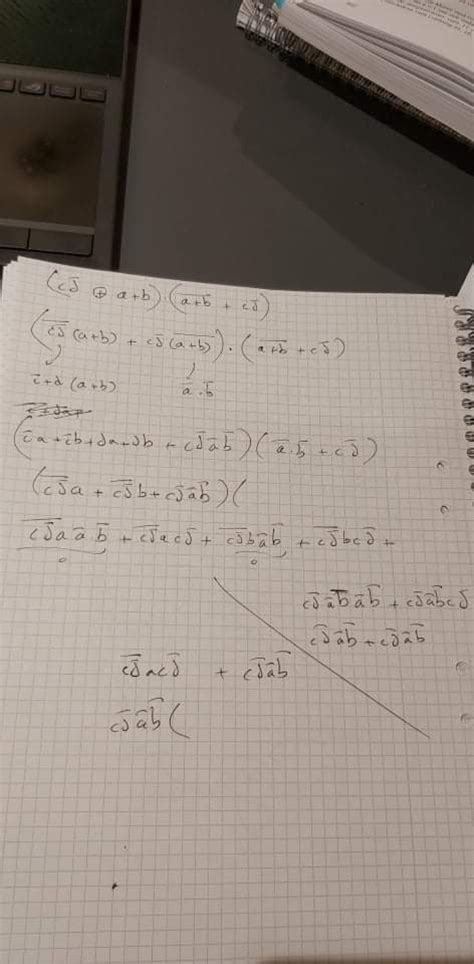 (cd̅ ⊕ a+b)·(a̅+̅b̅ + cd̅)
(c̅d̅̅ (a+b) + cd̅ (a̅+̅b̅))·(a̅+̅b̅ + cd̅)
c̅+d (a+b)    a̅·b̅
(c̅a+c̅b+da+db + cd̅a̅b̅)(a̅·b̅ + cd̅)
(c̅d̅̅a + c̅d̅̅b + cd̅a̅b̅)(
c̅d̅̅a a̅·b̅ + c̅d̅̅acd̅ + c̅d̅̅ba̅b̅ + c̅d̅̅bcd̅ +
0    0
cd̅a̅b̅a̅b̅ + cd̅a̅b̅cd̅
cd̅a̅b̅ + cd̅a̅b̅
c̅d̅̅acd̅ + cd̅a̅b̅
cd̅a̅b̅(